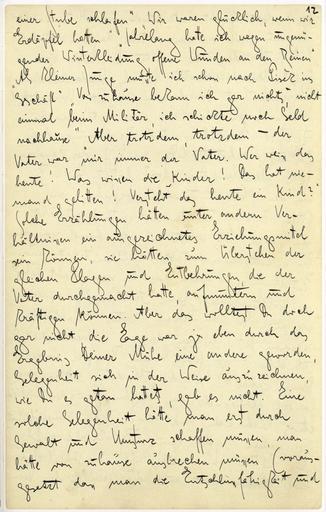 12
einer Stube schlafen" "Wir waren glücklich, wenn wir
Erdäpfel hatten" "jahrelang hatte ich wegen ungenü-
gender Winterkleidung offene Wunden an den Beinen"
"Als kleiner Junge musste ich schon nach Pisek ins
Geschäft" "Von zuhause bekam ich gar nichts, nicht
einmal beim Militär, ich schickte noch Geld
nachhause" "Aber trotzdem, trotzdem – der
Vater war mir immer der Vater. Wer weiss das
heute! Was wissen die Kinder! Das hat nie-
mand gelitten! Versteht das heute ein Kind?"
Solche Erzählungen hätten unter andern Ver-
hältnissen ein ausgezeichnetes Erziehungsmittel
sein können, sie hätten zum Überstehen der
gleichen Plagen und Entbehrungen, die der
Vater durchgemacht hatte, aufmuntern und
kräftigen können. Aber das wolltest Du doch
gar nicht, die Lage war ja eben durch das
Ergebnis Deiner Mühe eine andere geworden,
Gelegenheit sich in der Weise auszuzeichnen,
wie Du es getan hattest, gab es nicht. Eine
solche Gelegenheit hätte man erst durch
Gewalt und Umsturz schaffen müssen, man
hätte von zuhause ausbrechen müssen (voraus-
gesetzt dass man die Entschlussfähigkeit und